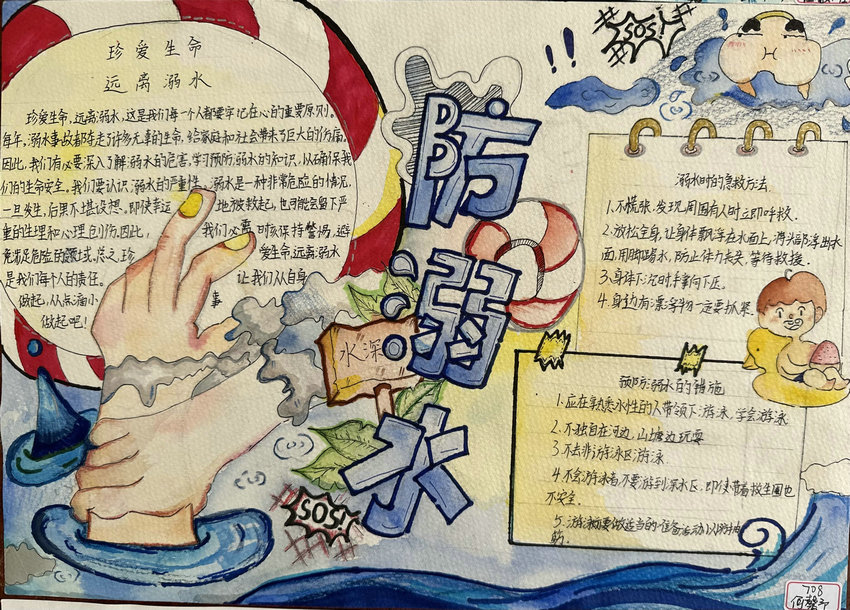 珍爱生命
远离溺水
珍爱生命,远离溺水,这是我们每一个人都要牢记在心的重要原则。
每年,溺水事故都夺走了许多无辜的生命,给家庭和社会带来了巨大的伤痛。
因此,我们有必要深入了解溺水的危害,学习预防溺水的知识,以确保我
们的生命安全。我们要认识溺水的严重性,溺水是一种非常危险的情况,
一旦发生,后果不堪设想。即使幸运地被救起,也可能会留下严
重的生理和心理创伤。因此,我们必需时刻保持警惕,避
免涉足危险的领域。总之,珍爱生命,远离溺水
是我们每个人的责任。让我们从自身
做起,从点滴小事
做起吧!
防溺水
水深
SOS!
SOS!
溺水时的急救方法
1、不慌张,发现周围有人时立即呼救.
2、放松全身,让身体飘浮在水面上,将头部浮出水
面,用脚踢水,防止体力丧失,等待救援.
3、身体下沉时手掌向下压.
4、身边有漂浮物一定要抓紧.
预防溺水的措施
1.应在熟悉水性的人带领下游泳,学会游泳
2.不独自在河边,山塘边玩耍
3.不去非游泳区游泳.
4.不会游泳者不要游到深水区,即使带着救生圈也
不安全.
5.游泳前要做适当的准备运动以防抽
708